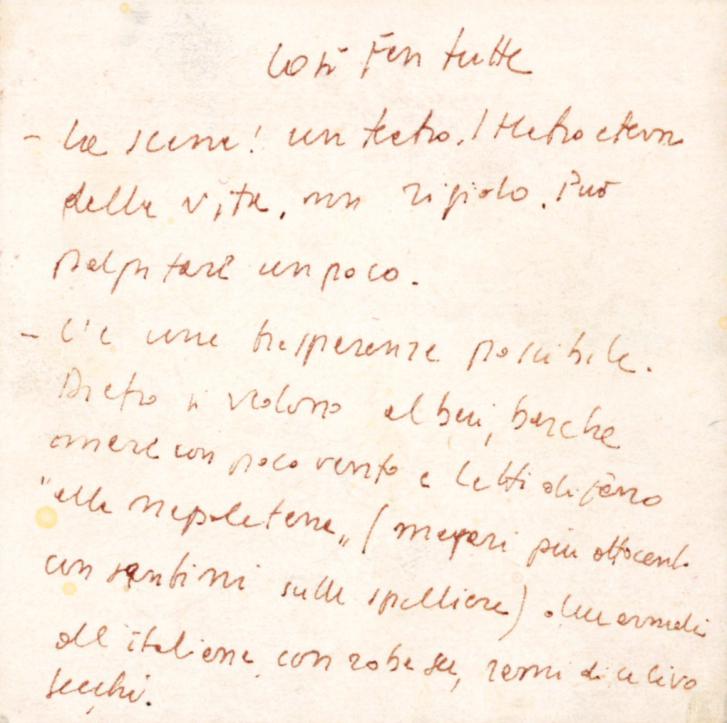 Così Fan tutte
- La scena: un teatro. Il teatro eterno
della vita, non rigido. Può
palpitare un poco.
- C'è una trasparenza possibile.
Dietro si vedono alberi, barche
amare con poco vento e letti di ferro
"alla napoletana" (magari più ottocento
con santini sulle spalliere) due armadi
all'italiana con roba su, rami di ulivo
secchi.